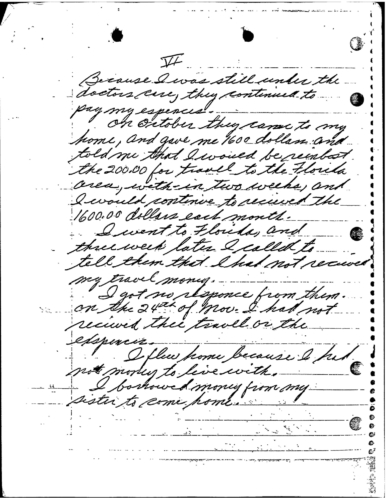 VI
Because I was still under the
doctors care, they continued to
pay my expences.
On October they came to my
home, and gave me 1600 dollars and
told me that I would be reimbost
the 200.00 for travel to the Florida
area, with-in two weeks, and
I would continue to recieved the
1600.00 dollars each month.
I went to Florida, and
three week later I called to
tell them that I had not recived
my travel money.
I got no responce from them.
on the 24th of Nov. I had not
recieved thee travel or the
expences.
I flew home because I had
not money to live with.
I borrowed money from my
sister to come home.